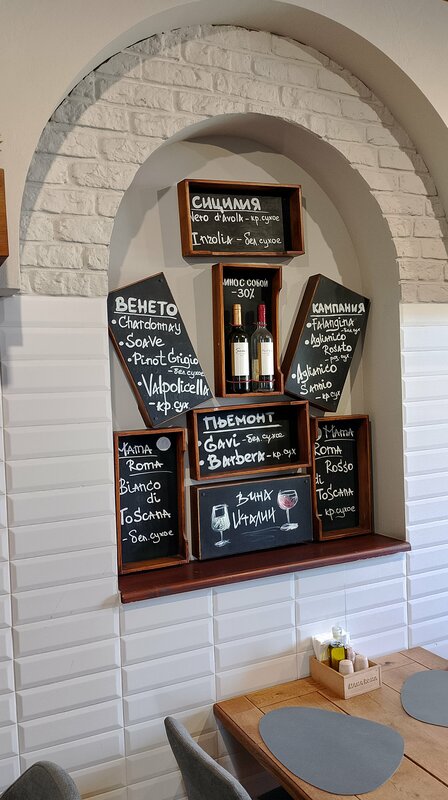 СИЦИЛИЯ
Nero d'Avola - кр. сухое
Inzolia - бел. сухое
ВИНО С СОБОЙ
-30%
ВЕНЕТО
• Chardonnay
• SOAVE
• Pinot Grigio
- бел. сухое
• Valpolicella
- кр. сух
КАМПАНИЯ
• Falangina
- бел. сух
• Aglianico
Rosato
- роз. сух
• Aglianico
Sannio
- кр. сух
ПЬЕМОНТ
• Gavi - бел. сухое
• Barbera - кр. сух
MAMA
ROMA
Bianco
di
TOSCANA
- бел. сух
MAMA
ROMA
ROSSO
di
TOSCANA
кр. сухое
ВИНА
ИТАЛИИ